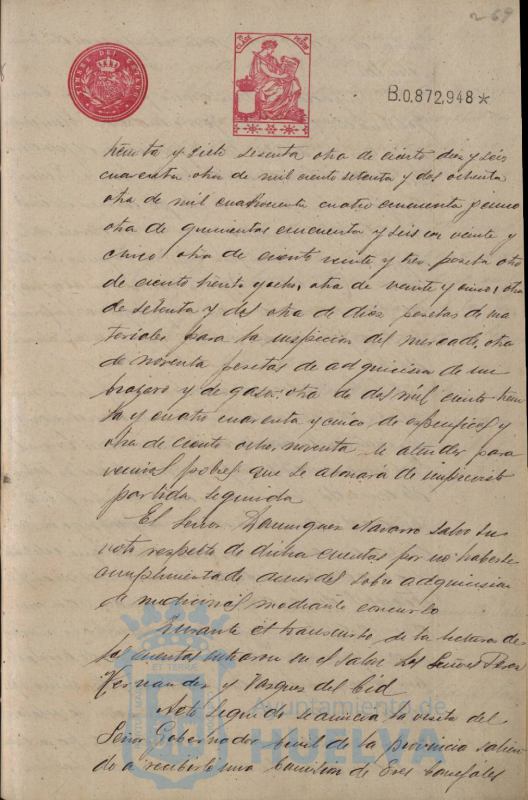 269
TIMBRE DEL ESTADO
B.0.872,948*
treinta y siete sesenta otra de ciento diez y seis
cuarenta otra de mil ciento setenta y dos ochenta
otra de mil cuatrocientas cuatro cincuenta y cinco
otra de quinientas cincuenta y seis con veinte y
cinco otra de ciento veinte y tres pesetas otra
de ciento treinta y ocho, otra de veinte y cinco, otra
de setenta y dos otra de diez pesetas de ma
teriales para la inspeccion del mercado, otra
de noventa pesetas de adquicision de un
brazero y de gasa; otra de dos mil ciento trein
ta y cuatro cuarenta y cinco de especificos y
otra de ciento ocho, noventa de atender para
vecinos pobres que se abonará de imprevisto
partida segunda
El Señor Dominguez Navarro salvo su
voto respecto de dichas cuentas por no haberse
cumplimentado acuerdos sobre adquicision
de medicinas mediante concurso
Durante el transcurso de la lectura de
las cuentas entraron en el salon los Señores Perez
Fernandez y Vazquez del Cid
Acto seguido se anuncia la visita del
Señor Gobernador Civil de la provincia salien
do a recibirle una Comision de Sres Concejales
Ayuntamiento de
HUELVA